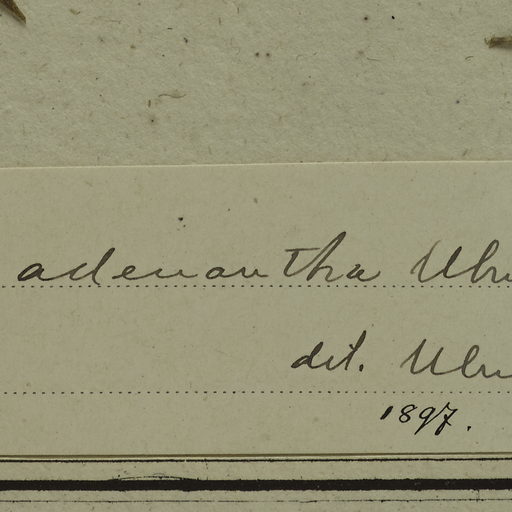 adenantha Ulbr
det. Ulbr
1897.